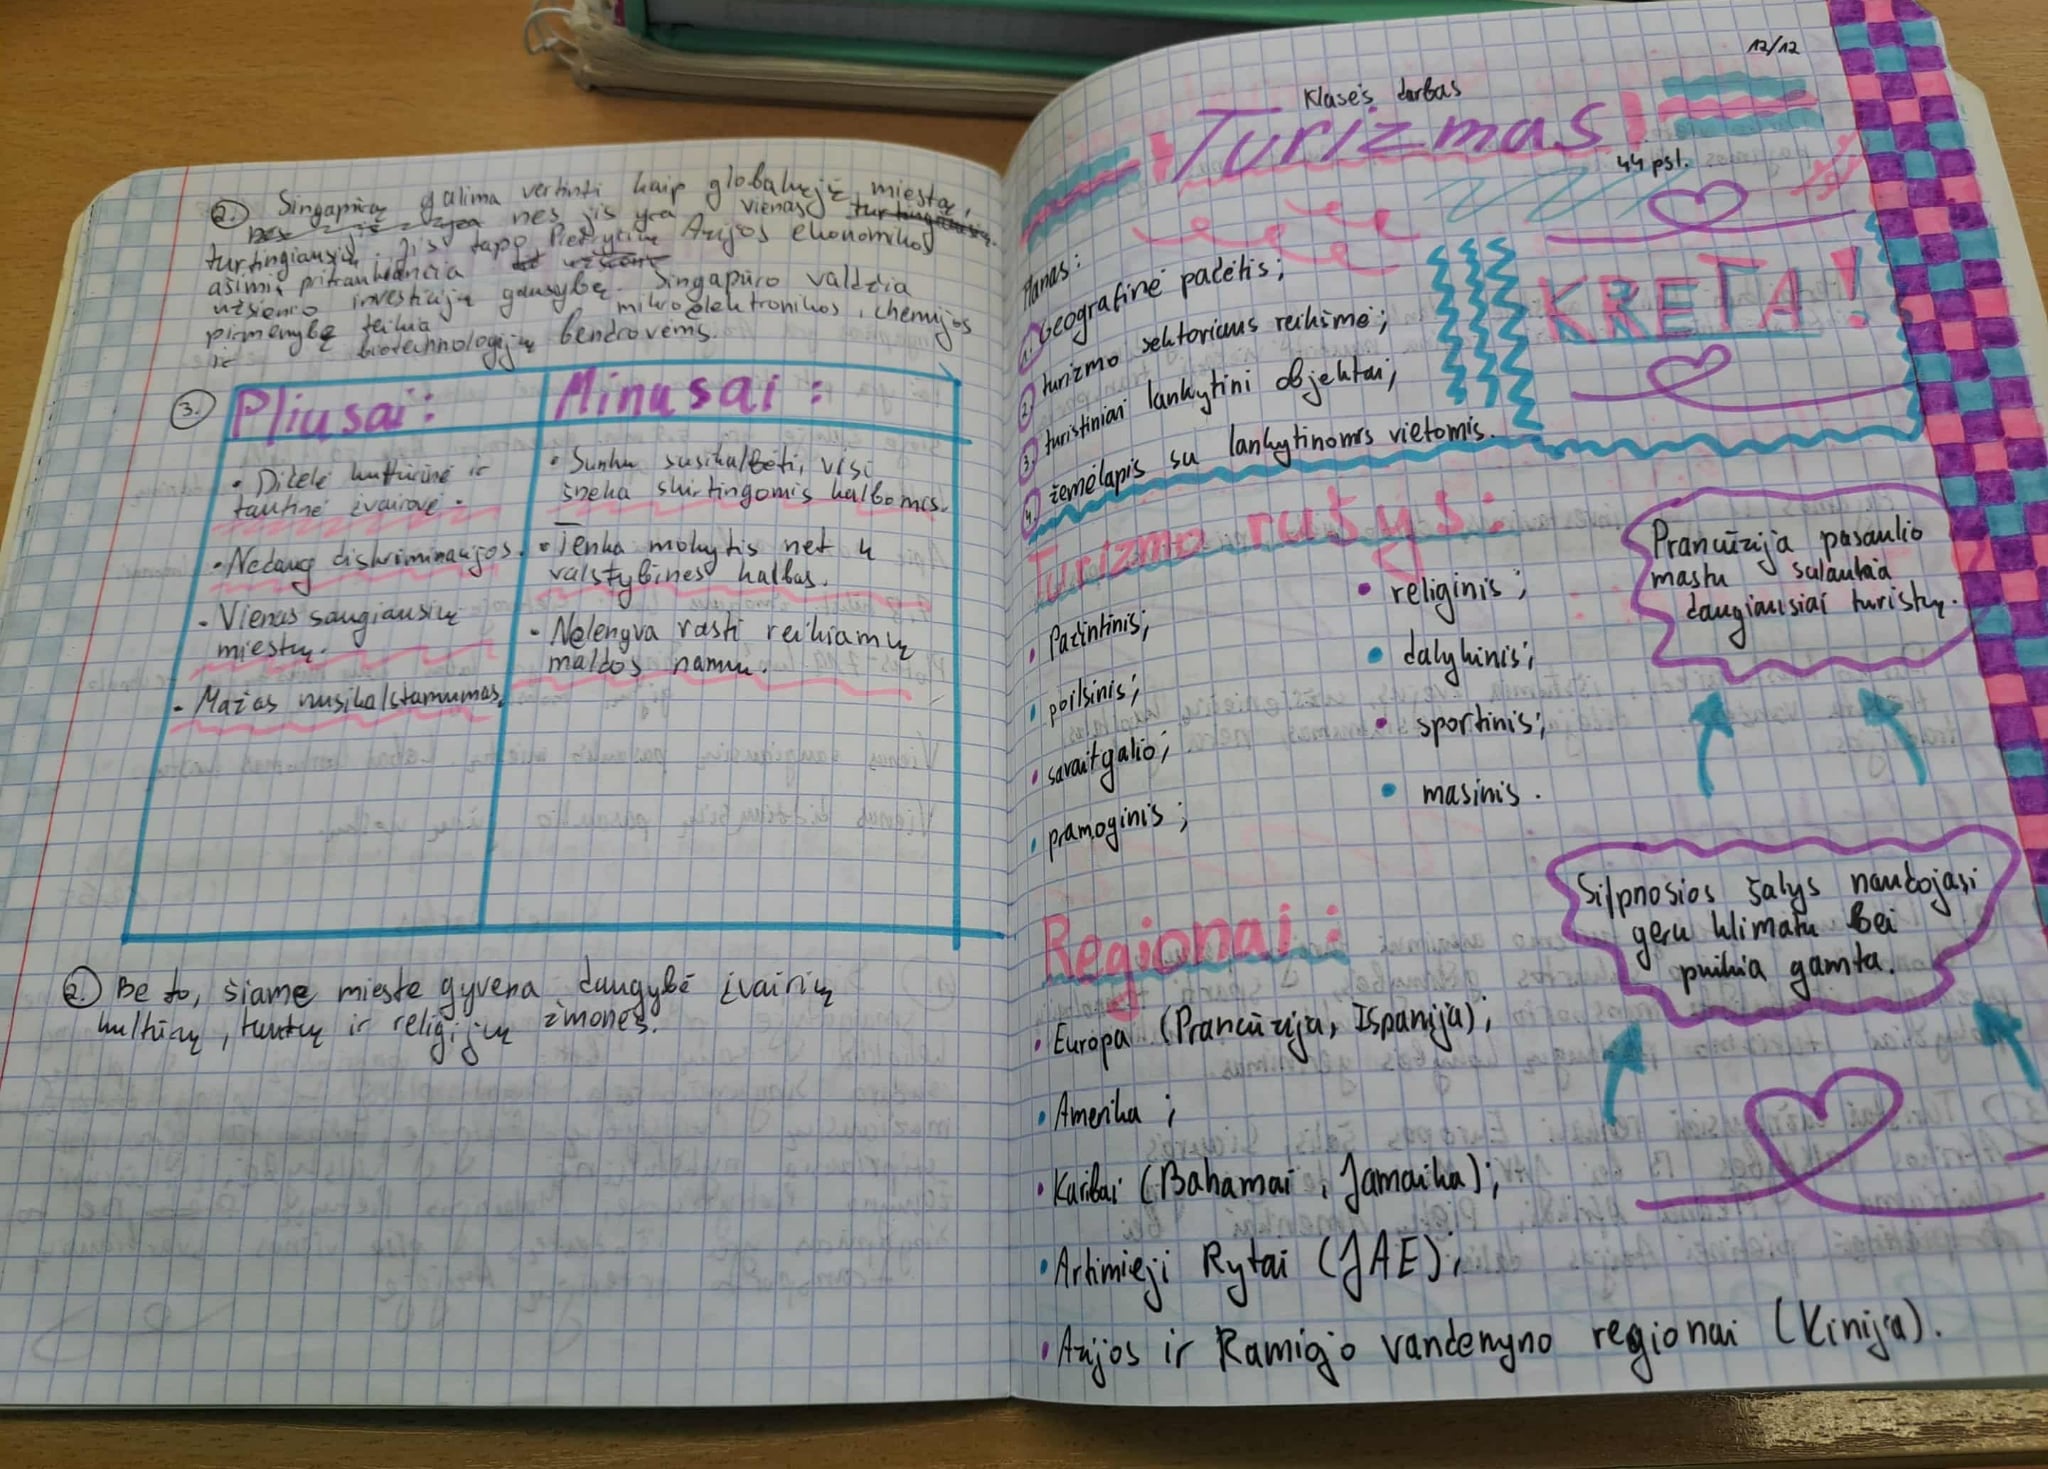 2. Singapūrą galima vertinti kaip globalųjį miestą,
nes jis yra vienas
turtingiausių. Jis tapo Pietryčių Azijos ekonomikos
ašimi, pritraukiančia
užsienio investicijų gausybę. Singapūro valdžia
pirmenybę teikia mikroelektronikos, chemijos
ir biotechnologijų bendrovėms.
3. Pliusai: Minusai:
• Didelė kultūrinė ir
tautinė įvairovė.
• Nedaug diskriminacijos.
• Vienas saugiausių
miestų.
• Mažas nusikalstamumas.
• Sunku susikalbėti, visi
šneka skirtingomis kalbomis.
• Tenka mokytis net 4
valstybines kalbas.
• Nelengva rasti reikiamų
maldos namų.
2. Be to, šiame mieste gyvena daugybė įvairių
kultūrų, tautų ir religijų žmonės.
12/12
Klasės darbas
Turizmas
44 psl.
Planas:
1. Geografinė padėtis;
2. turizmo sektoriaus reikšmė;
3. turistiniai lankytini objektai;
4. žemėlapis su lankytinomis vietomis.
KRETA!
Turizmo rušys:
• Pažintinis;
• poilsinis;
• savaitgalio;
• pramoginis;
• religinis;
• dalykinis;
• sportinis;
• masinis.
Prancūzija pasaulio
mastu sulaukia
daugiausiai turistų.
Silpnosios šalys naudojasi
geru klimatu bei
puikia gamta.
Regionai:
• Europa (Prancūzija, Ispanija);
• Amerika;
• Karibai (Bahamai, Jamaika);
• Artimieji Rytai (JAE);
• Azijos ir Ramiojo vandenyno regionai (Kinija).